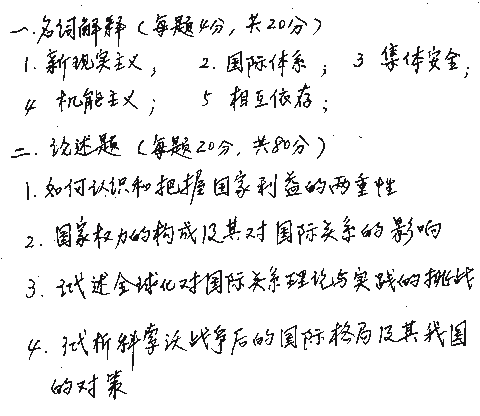 一.名词解释（每题4分，共20分）
1.新现实主义； 2.国际体系； 3 集体安全；
4 机能主义； 5 相互依存；
二.论述题（每题20分，共80分）
1.如何认识和把握国家利益的两重性
2.国家权力的构成及其对国际关系的影响
3.试述全球化对国际关系理论与实践的挑战
4.试析科索沃战争后的国际格局及其我国
的对策